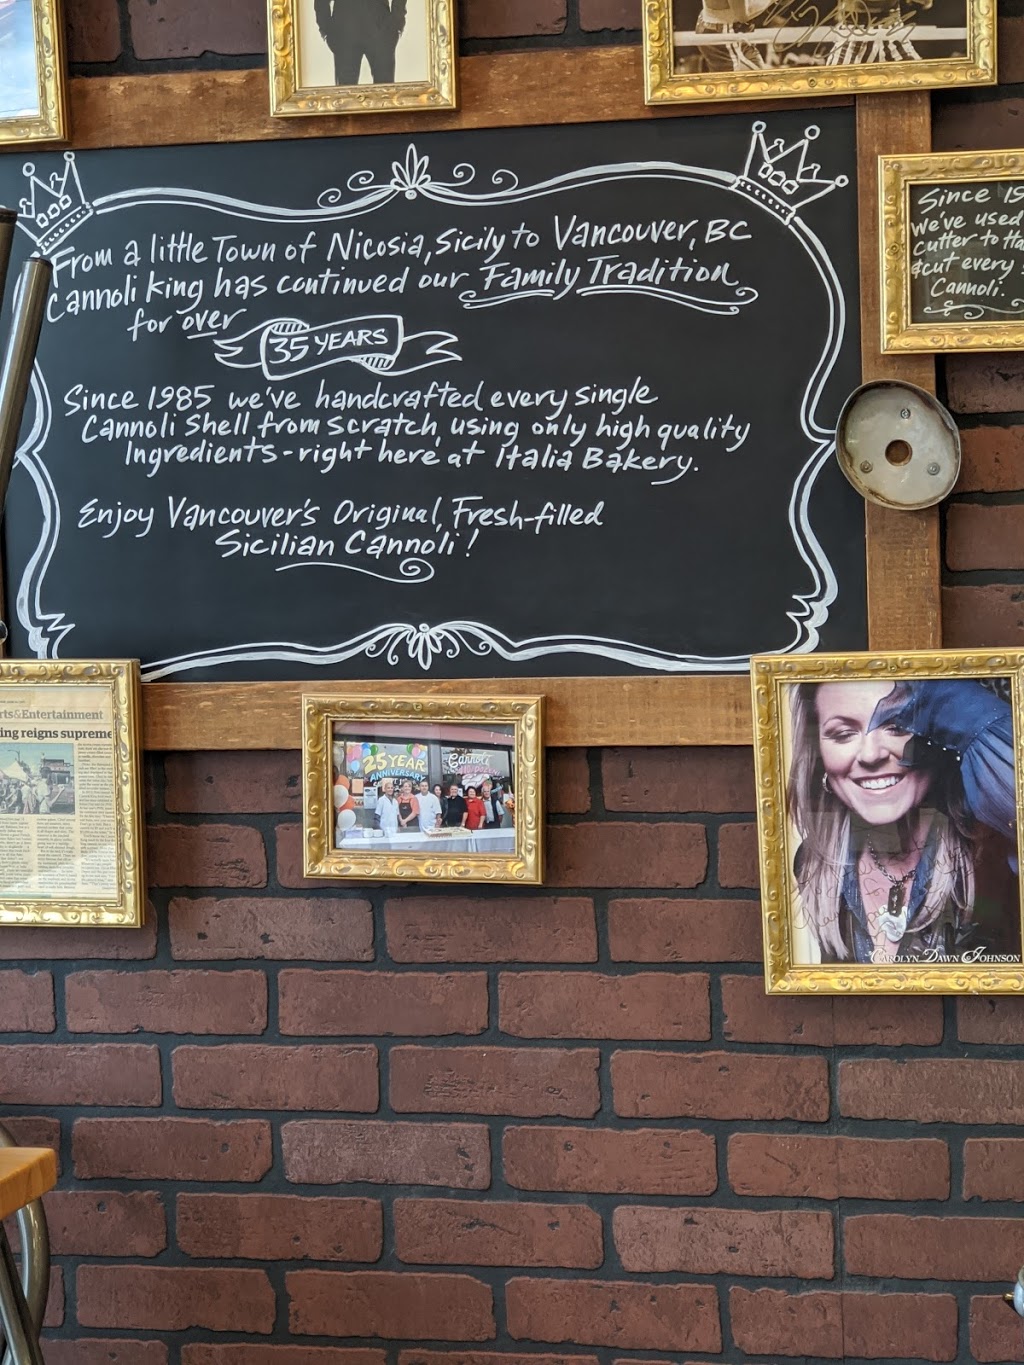 From a little Town of Nicosia, Sicily to Vancouver, BC
Cannoli King has continued our Family Tradition
for over
35 YEARS
Since 1985 we've handcrafted every single
Cannoli Shell from scratch, using only high quality
Ingredients - right here at Italia Bakery.
Enjoy Vancouver's Original, Fresh-filled
Sicilian Cannoli!
Since 19
we've used
cutter to
&cut every
Cannoli.
rts&Entertainment
ing reigns supreme
25 YEAR
ANNIVERSARY
Cannoli
CAROLYN DAWN JOHNSON